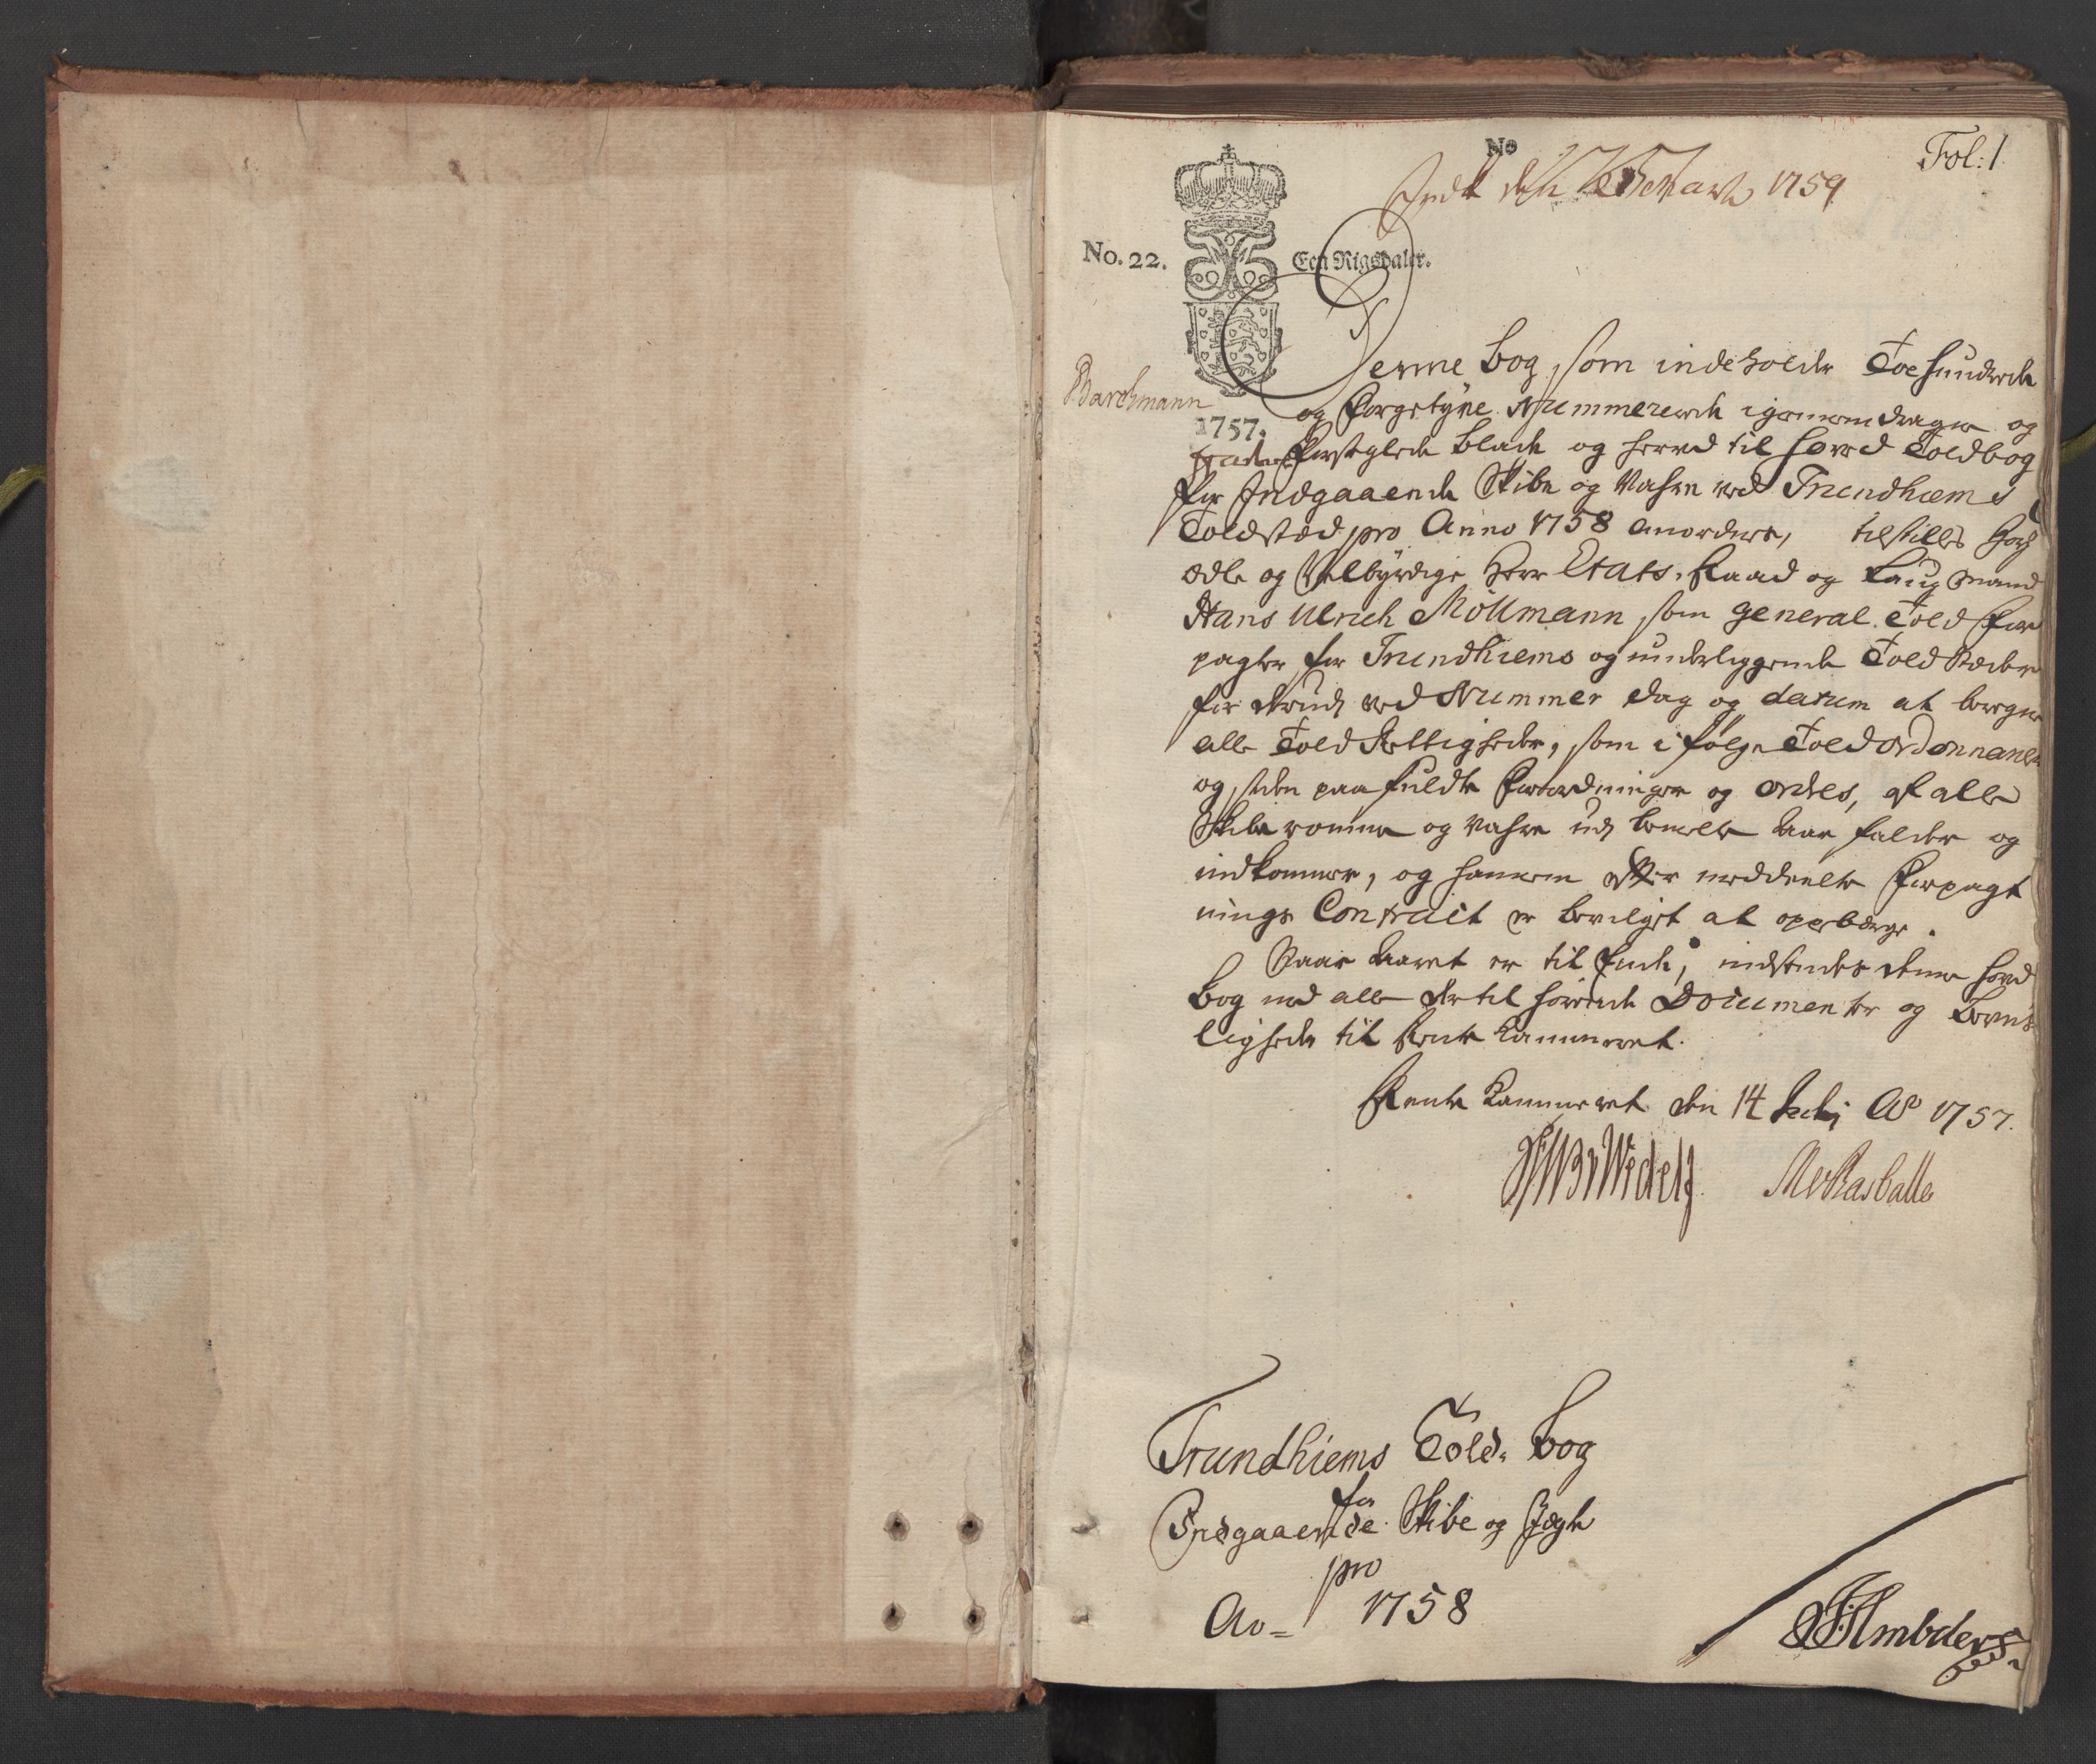 Fol: 1
No
Indk den Februar 1759
No. 22.
Een Rigsdaler.
Barchmann
1757.
Denne bog, som indeholder Toehundrede
og Nummererede igiennemdragne og
forseglede blade og herved til hoved Toldbog
for Indgaaende Skibe og Vahre ved Trundhiems
Toldsted pro Anno 1758 anordnes, tilstilles Høy
ædle og Velbyrdige Herr Etats-Raad og Laugmand
Hans Ulrich Möllmann, som general Told For
pagter for Trundhiems og underliggende Toldstæder
for udi ved Nummer dag og datum at beregne
alle Told Rettigheder, som i følge Told Ordonnancen
og siden paafuldte Forordninger og ordres, af alle
Skibe romme og Vahre udi bemelte Aar falder og
indkommer, og hannem efter meddeelte Forpagt
nings Contract er bevilget at oppebærge.
Naar Aaret er til Ende, indsendes denne hoved
bog med alle dertil hørende Documenter og beviis
ligheder til Rente Kammeret.
Rente Kammeret den 14 Julij Ao 1757.
Trundhiems Told-bog
for
Indgaaende Skibe og Jægte
pro
Ao= 1758